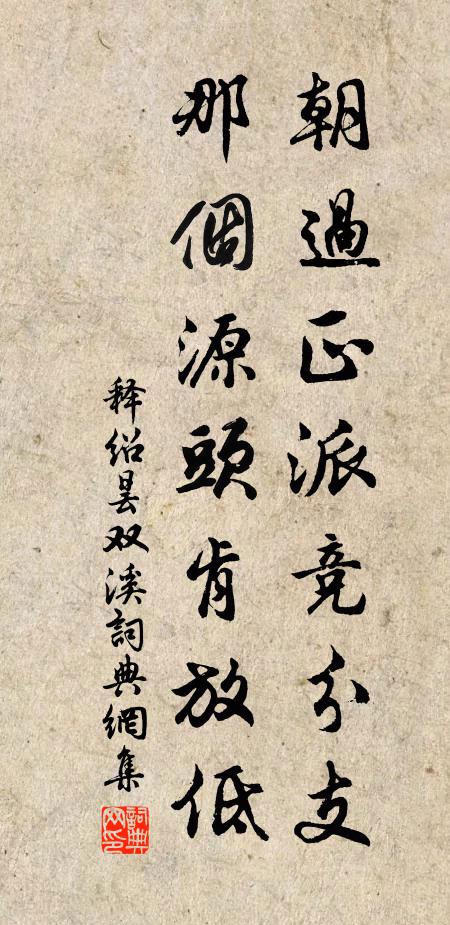 朝過正派竞分支
那個源頭肯放低
释绍昙双溪詞典網集
詞典网印